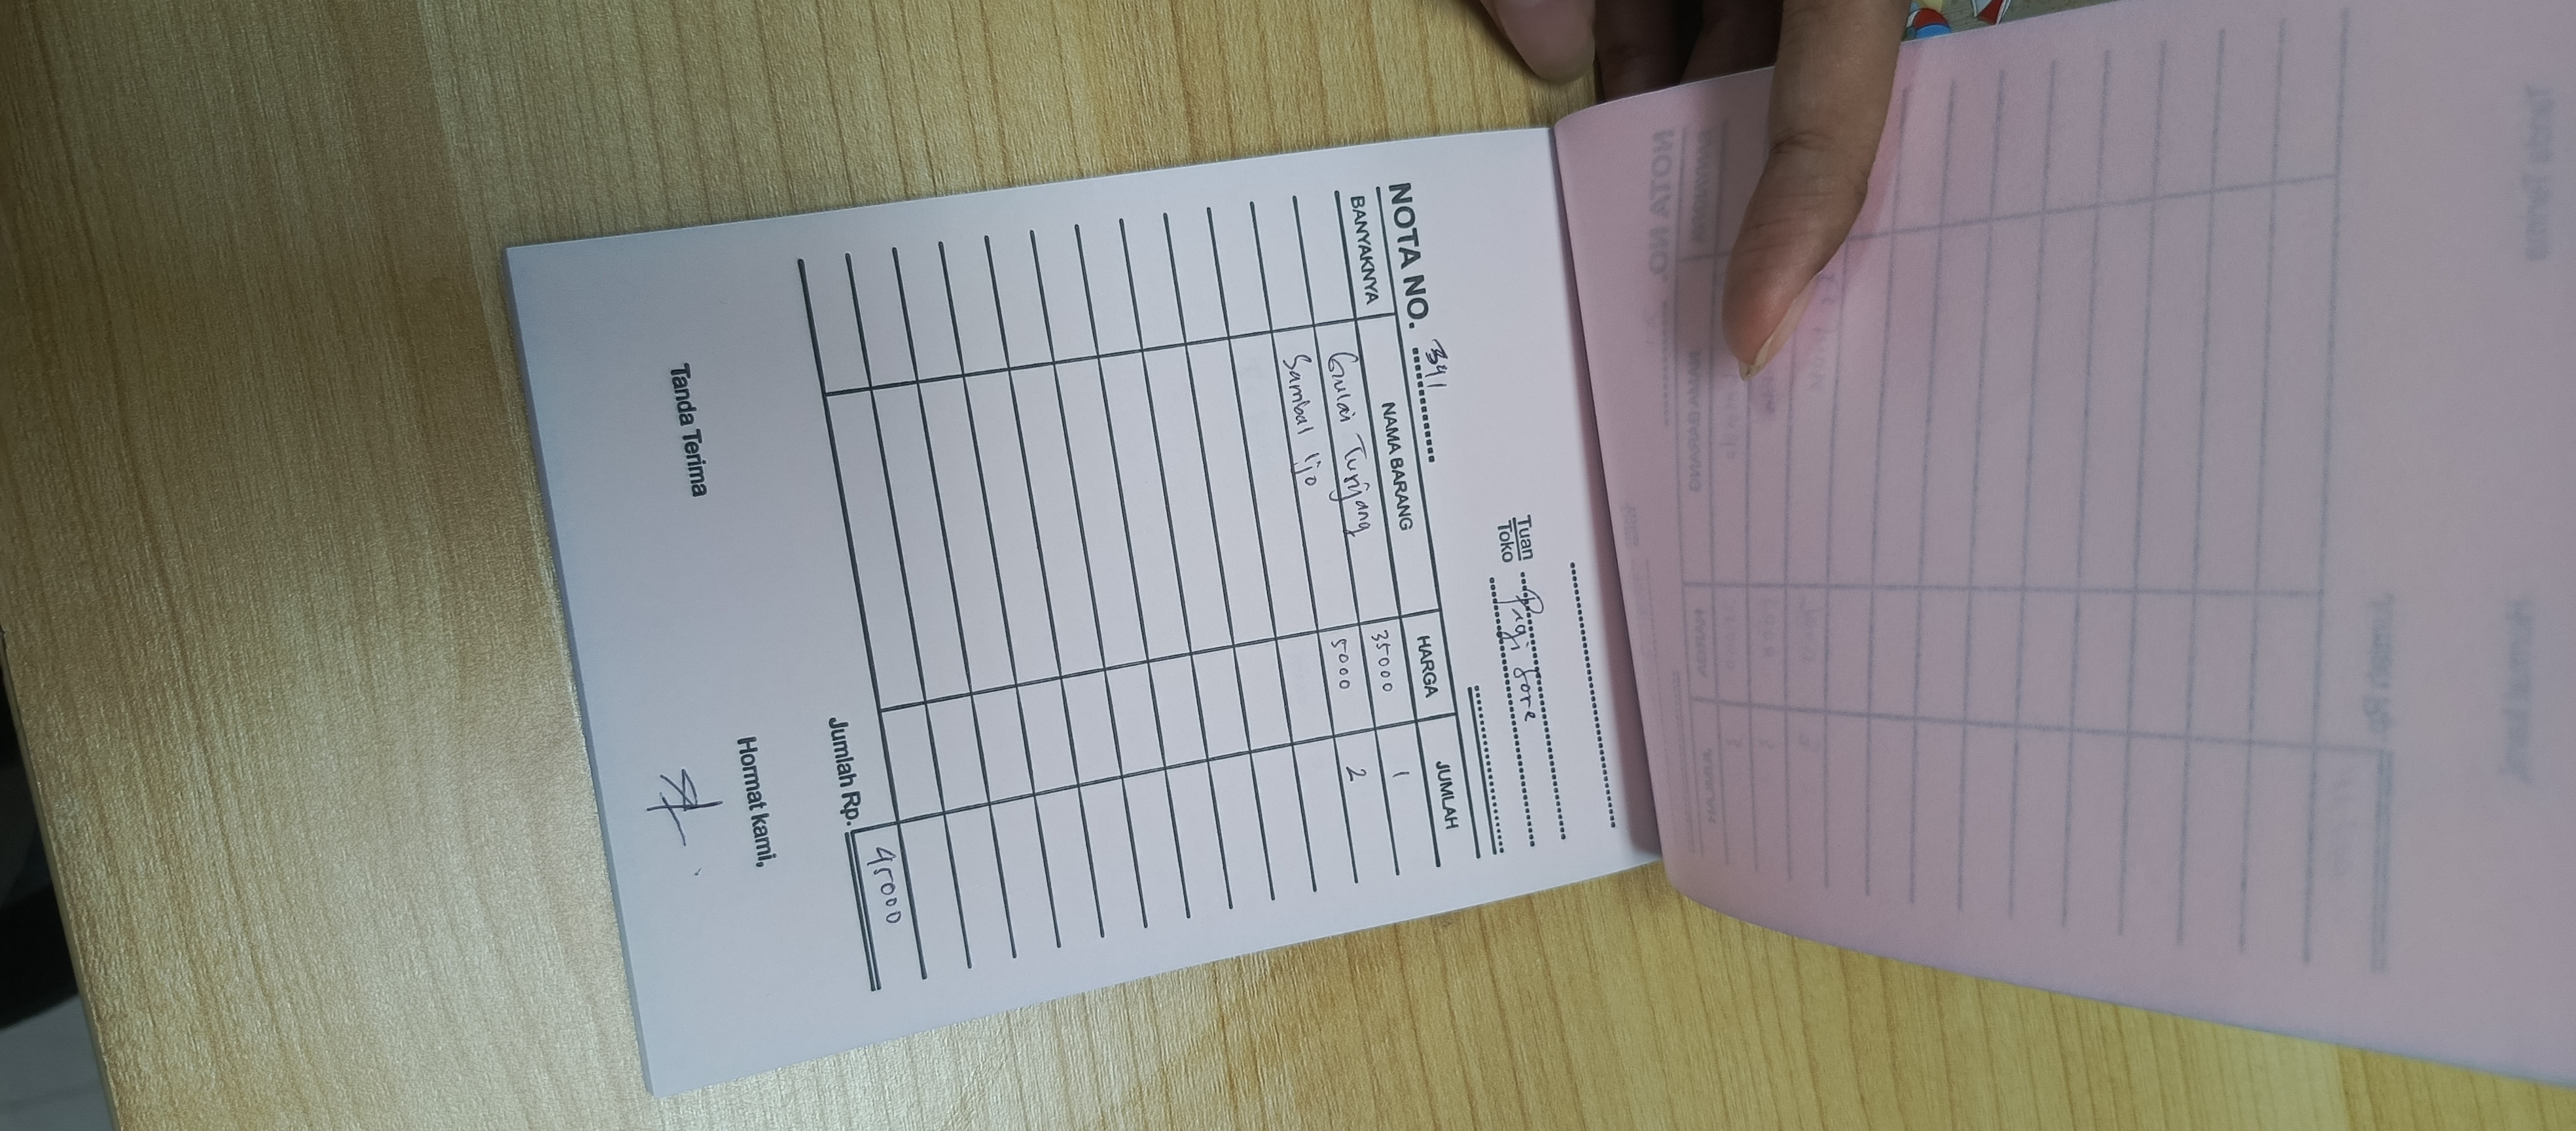 Tuan
Toko Pagi Sore
NOTA NO. 341
BANYAKNYA NAMA BARANG HARGA JUMLAH
Gulai Tunjang 35000 1
Sambal Ijo 5000 2
Jumlah Rp. 45000
Tanda Terima Hormat kami,